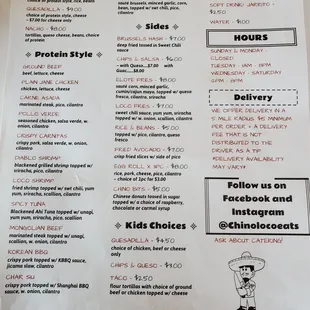 QUESADILLA - $9.00
choice of protein style, cheese
* $7.00 for cheese only
NACHO - $8.00
tortillas, queso cheese, beans, choice
of protein
Protein Style
GROUND BEEF
beef, lettuce, cheese
PLAIN JANE CHICKEN
chicken, lettuce, cheese
CARNE ASADA
marinated steak, pico, cilantro
POLLO VERDE
seasoned chicken, salsa verde, w.
onion, cilantro
CRISPY CARNITAS
crispy pork, salsa verde, w. onion,
cilantro
DIABLO SHRIMP
blackened grilled shrimp topped w/
pico, cilantro
LOCO SHRIMP
fried shrimp topped w/ swt chili, yum
yum, sriracha, scallion, cilantro
SPICY TUNA
Blackened Ahi Tuna topped w/ unagi,
yum yum, sriracha, pico, scallion
MONGOLIAN BEEF
marinated steak topped w/ unagi,
scallion, w. onion, cilantro
KOREAN BBQ
crispy pork topped w/ KBBQ sauce,
jicama slaw, cilantro
CHAR SIU
crispy pork topped w/ Shanghai BBQ
sauce, w. onion, cilantro
yum, sriracha, cilantro
NOLA BRUSSELS
beans, topped w/ swt chili, pico,
Sides
BRUSSELS HASH - $7.00
deep fried tossed in Sweet Chili
sauce
CHIPS & SALSA - $6.00
- with Queso....$7.00 with
Guac.....$8.00
ELOTE FRIES - $8.00
sauté corn, minced garlic,
cumin/cajun mayo, topped w/ queso
fresco, cilantro, sriracha
LOCO FRIES - $7.00
sweet chili sauce, yum yum, sriracha,
topped w/ w. onion, scallion, cilantro
RICE & BEANS - $5.00
topped w/ pico, cilantro, queso
fresco
FRIED AVOCADO - $7.00
crisp fried slices w/ side of pico
EGG ROLL X 1PC - $8.00
rice, pork, cheese, pico, cilantro
- choice of 1pc for $3.00
CHINO BITS - $5.00
Chinese donuts tossed in sugar
topped w/ a choice of raspberry,
chocolate or carmel syrup
Kids Choices
QUESADILLA - $4.50
choice of chicken, beef or cheese
only
CHIPS & QUESO - $3.00
TACO - $2.50
flour tortillas with choice of ground
beef or chicken topped w/ cheese
SOFT DRINK/ JARRITO -
$2.50
WATER - $1.00
HOURS
SUNDAY & MONDAY -
CLOSED
TUESDAY - 11AM - 8PM
WEDNESDAY - SATURDAY
6PM - 8PM
Delivery
WE OFFER DELIVERY IN A
5 MILE RADIUS. $5 MINIMUM
PER ORDER + A DELIVERY
FEE THAT IS NOT
DISTRIBUTED TO THE
DRIVER AS A TIP.
*DELIVERY AVAILABILITY
MAY VARY*
Follow us on
Facebook and
Instagram
@Chinolocoeats
ASK ABOUT CATERING!